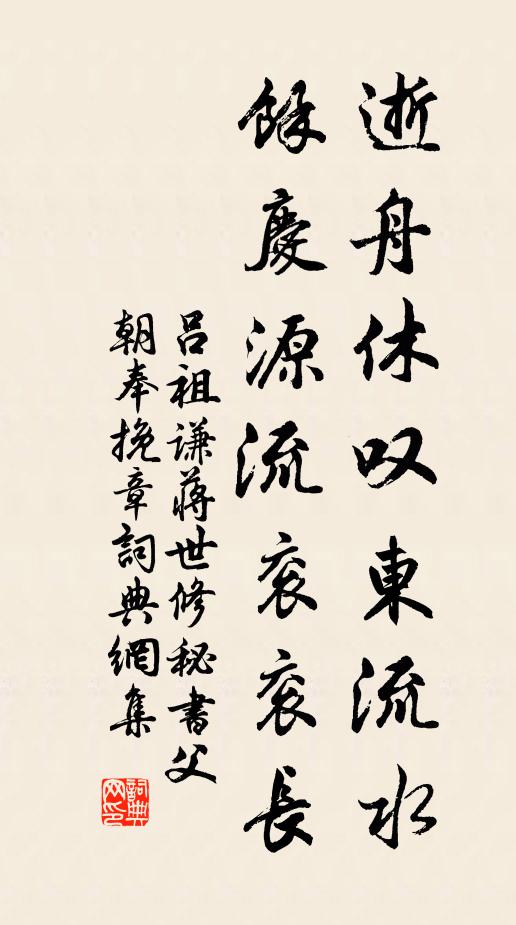 逝舟休叹東流水
餘慶源流衮衮長
吕祖謙蔣世修秘書父
朝奉挽章詞典網集
詞典
网印